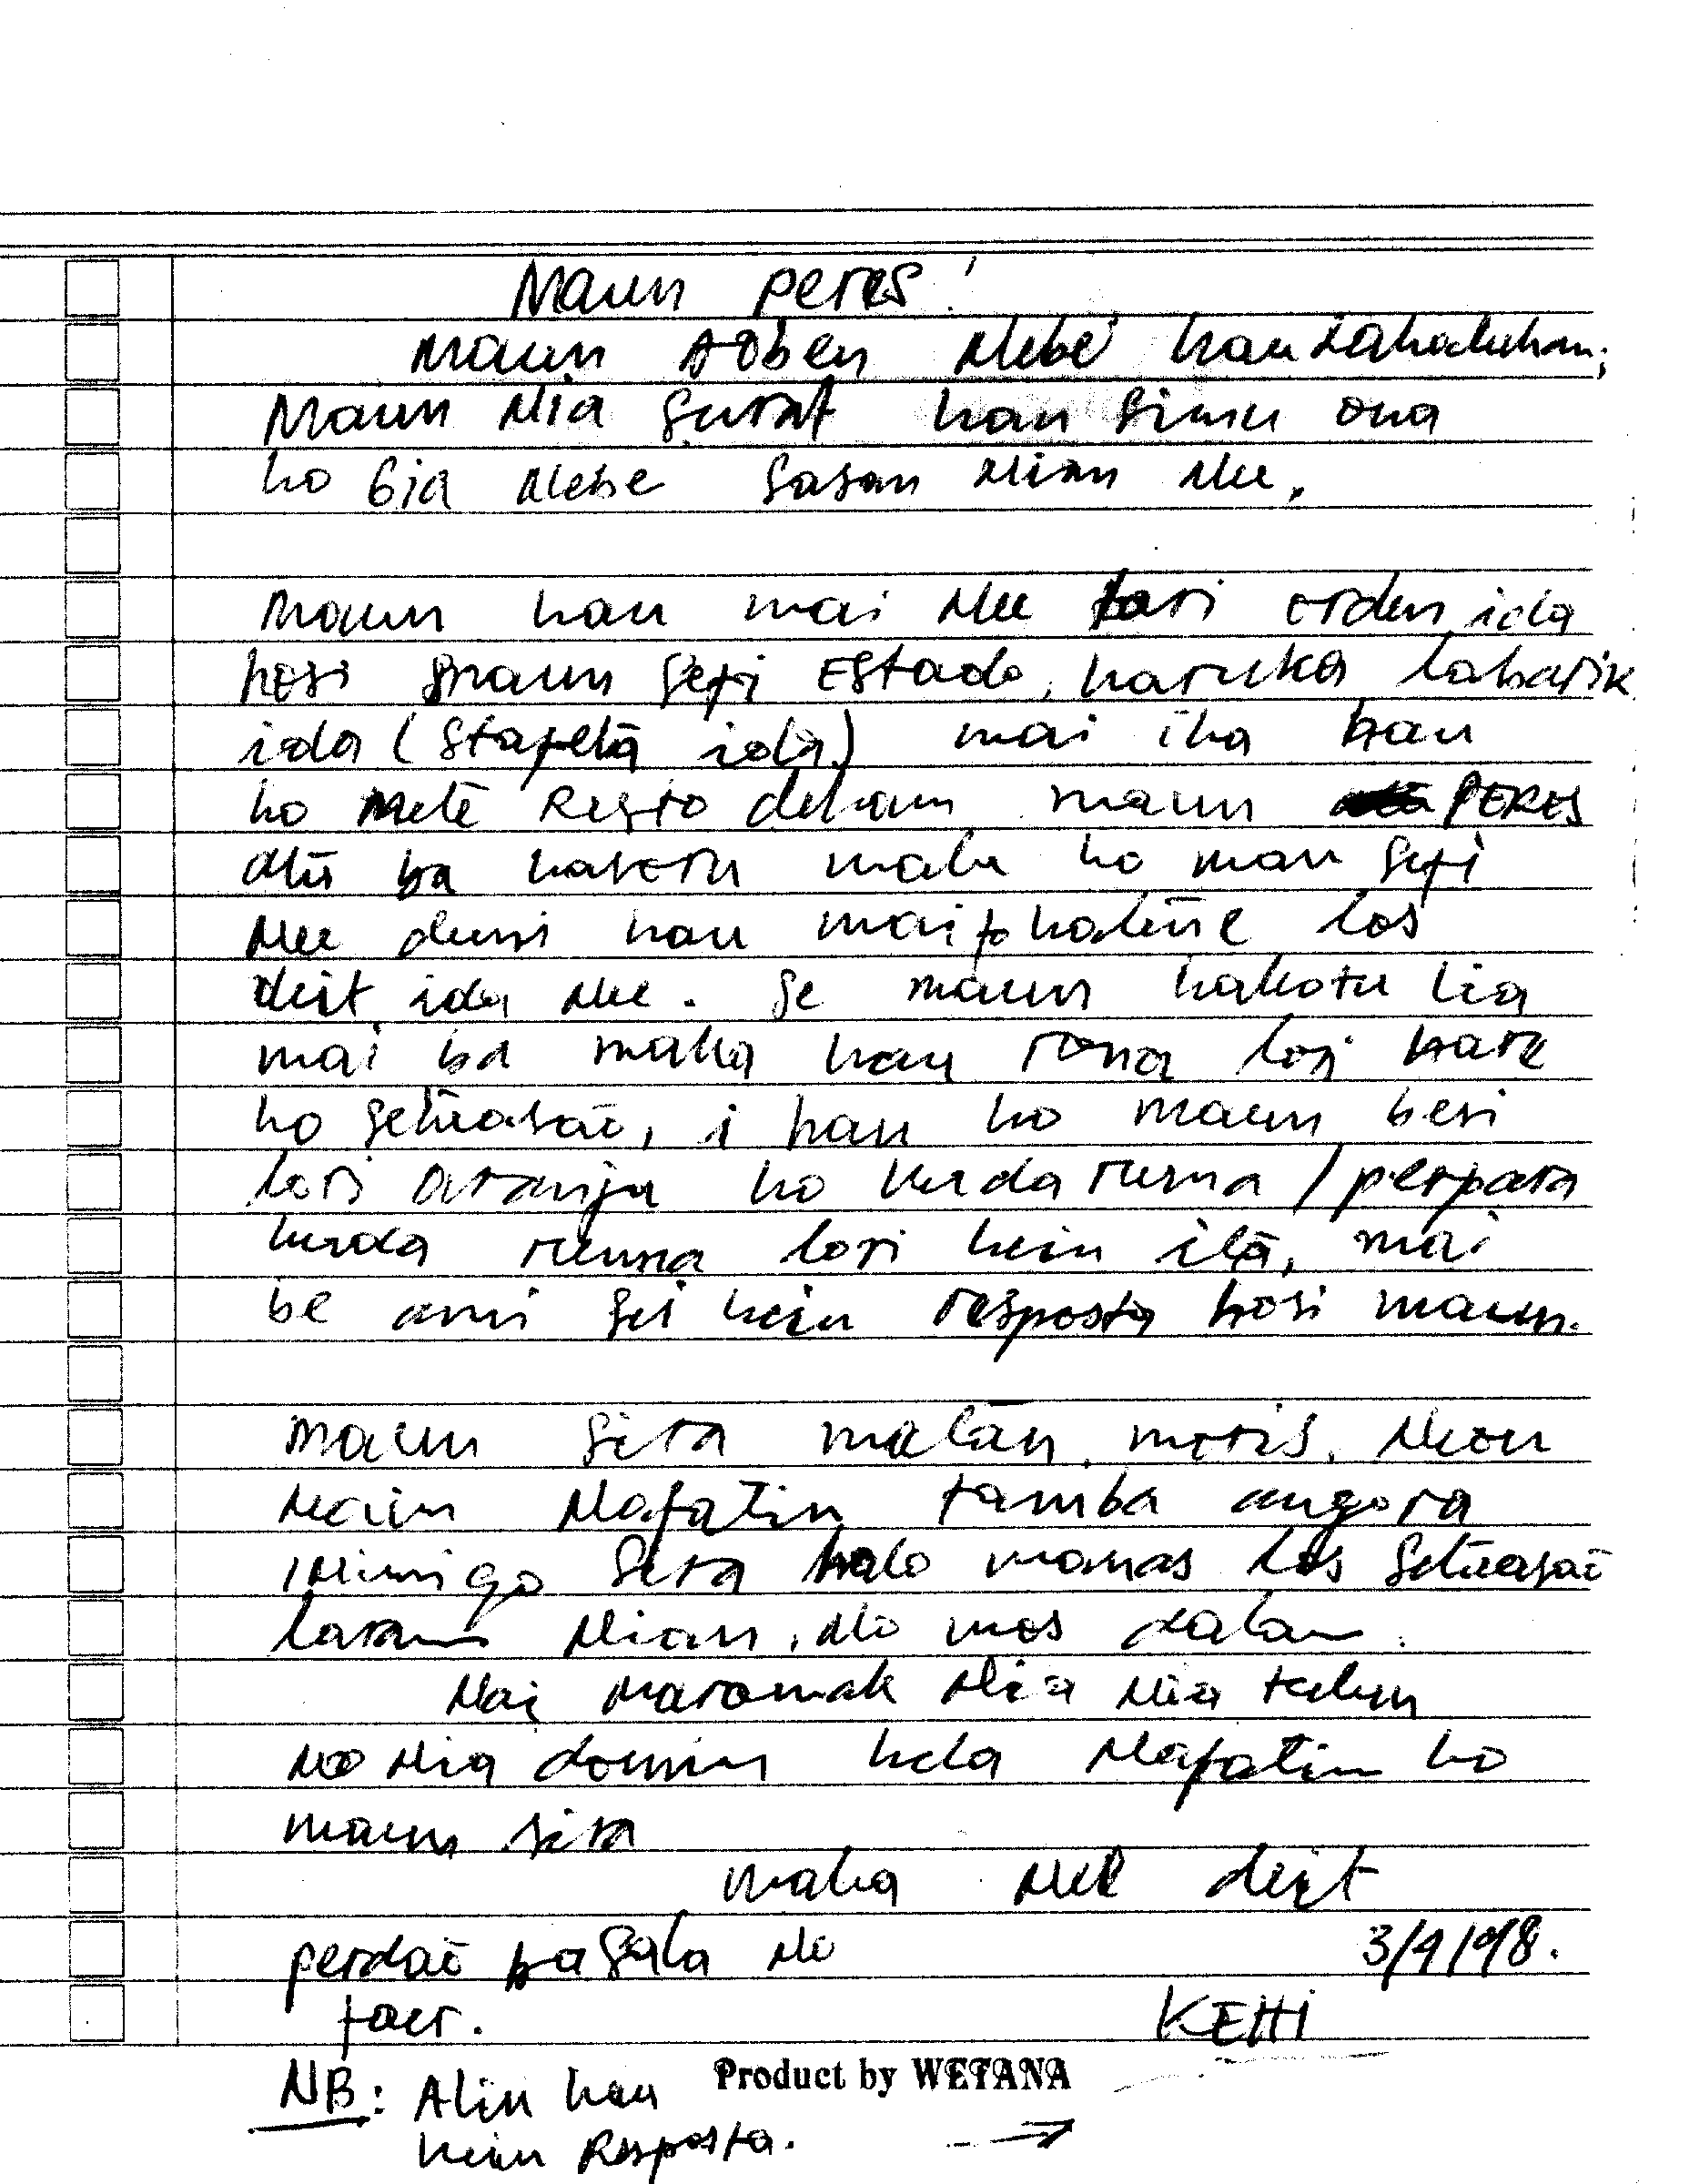 Maun peres!
Maun doben Nebe hau
Maun Nia surat hau simu ona
ho bia Nebe sasan Nian Nee.
Maun hau mai Nee lori orden ida
hosi maun sefi Estado, haruka labarik
ida (stafeta ida) mai iha hau
ho mete Resto dehan maun PERES
atu ba hasoru malu ho maun sefi
Nee duni hau mai halise los
deit ida Nee. Se maun hakotu lia
mai ba maka hau rona lori hare
ho setuasaõ, i hau ho maun besi
lori aranja ho kuda ruma / perpara
kuda ruma lori hein ita, mai
be ami sei hein resposta hosi maun.
maun sira matan moris. Neon
Nain Nafatin tamba angora
inimigo sira halo manas los setuasaõ
laran Nian, No mos dalan.
Nai maromak Nia Nia tulun
No Nia domin hela Nafatin ho
maun sira
maka Nee deit
perdaõ ba sala No 3/9/98.
faer. KEHI
NB: Alin hau Product by WETANA
hein Resposta. →